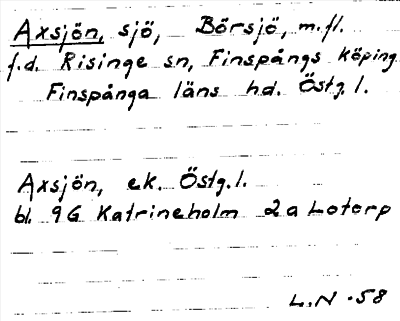 Axsjön, sjö, Börsjö, m.fl.
f.d. Risinge sn, Finspångs köping
Finspånga läns hd. Östg.l.
Axsjön, ek. Östg.l.
bl. 9G Katrineholm 2a Lotorp
L.N -58